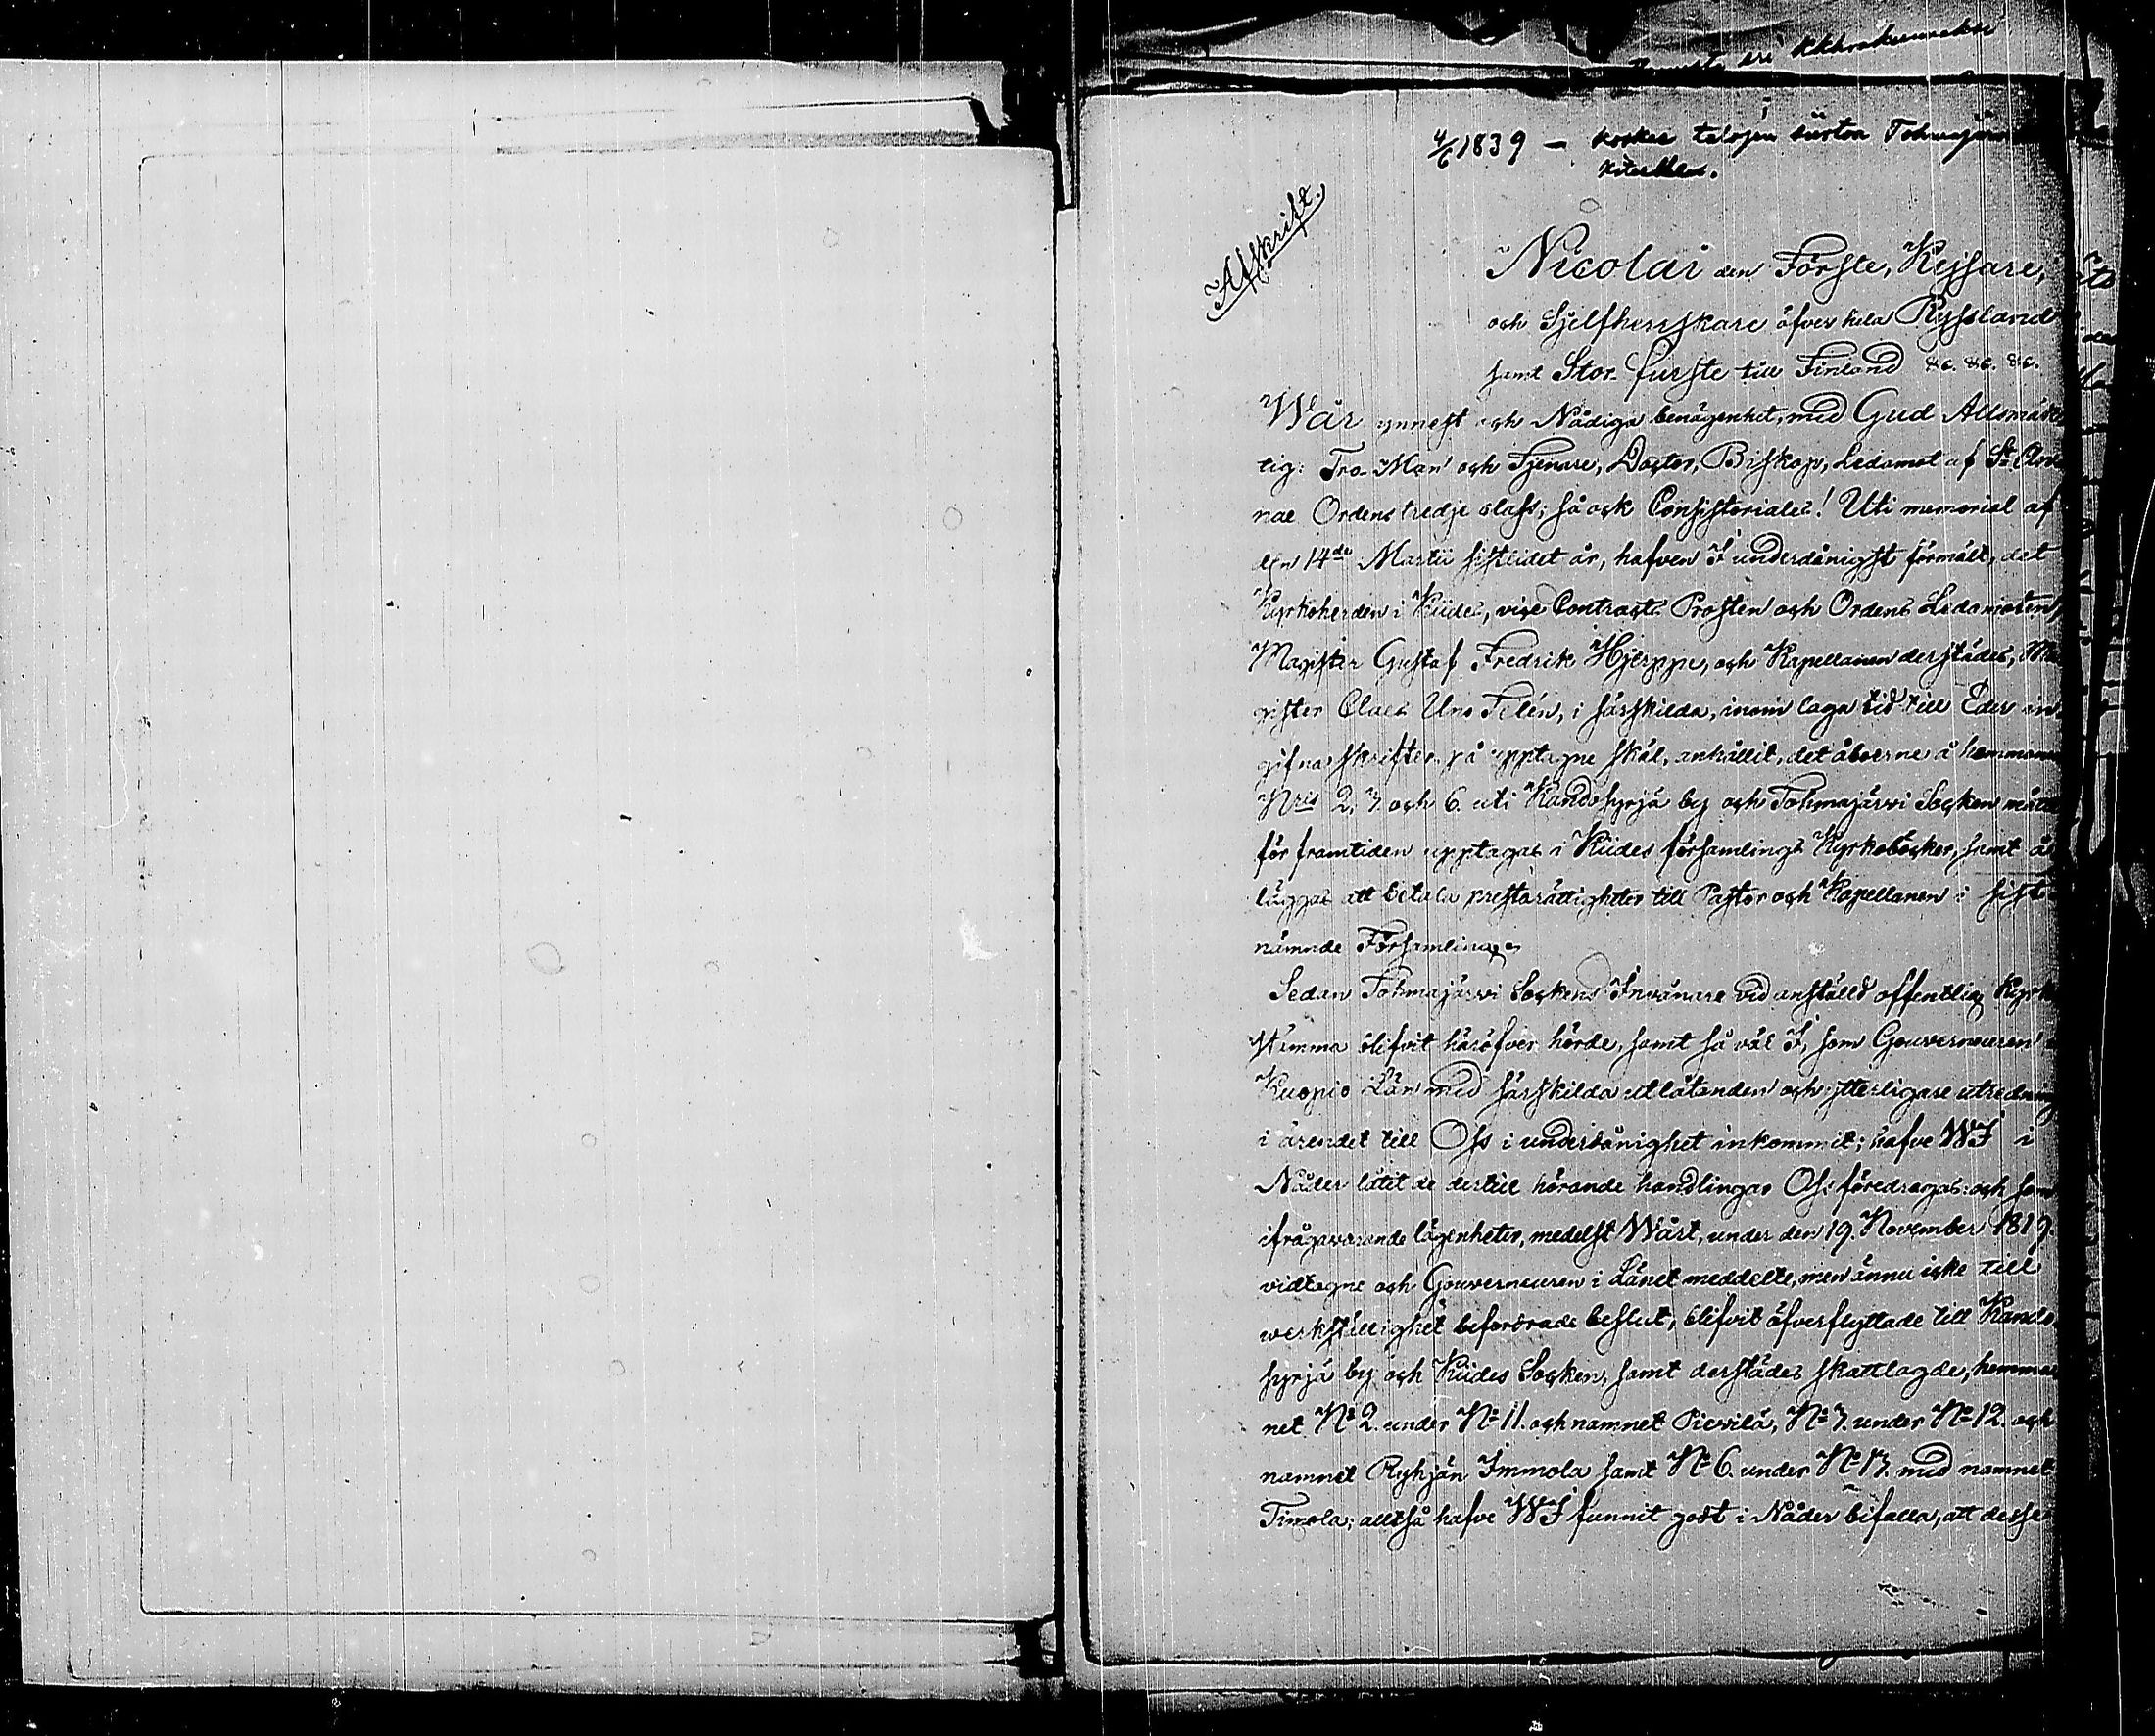 4/6 1839 — koskee talojen siirtoa Tohmajärv
Kiteelle.
Afskrift.
Nicolai den Förste, Kejsare,
och Sjelfherrskare öfver hela Ryssland
samt Stor-furste till Finland &c. &c. &c.
Wår ynnest och Nådiga benägenhet, med Gud Allsmäk
tig: Tro-Man och Tjenare, Doctor, Biskop, Ledamot af St. An
nae Ordens tredje class; så ock Consistoriales! Uti memorial af
den 14de Martii sistlidet år, hafven I underdånigst förmält, det
Kyrkoherden i Kiides, vice Contracts Prosten och Ordens Ledamoten,
Magister Gustaf Fredrik Hjerppe, och Kapellanen derstädes, Ma
gister Claes Uno Telén, i särskilda, inom laga tid till Eder in
gifna skrifter, på upptagne skäl, anhållit, det åboerne å hemmanen
Nris 2, 3 och 6 uti Kandosyrjä by och Tohmajärvi Socken måtte
för framtiden upptagas i Kiides församlings Kyrkoböcker, samt å
läggas att betala prestarättigheter till Pastor och Kapellanen i sist-
nämnde Församling.
Sedan Tohmajärvi Sockens Invånare vid anställd offentlig Kyrko
stämma blifvit häröfver hörde, samt så väl I, som Gouverneuren i
Kuopio Län med särskilda utlåtanden och ytterligare utredning
i ärendet till Oss i underdånighet inkommit; hafve WI i
Nåder låtit de dertill hörande handlingar Oss föredragas: och som
ifrågavarande lägenheter, medelst Wårt, under den 19. November 1819.
vidtagne och Gouverneuren i Länet meddelte, men ännu icke till
werkställighet befordrade beslut, blifvit öfverflyttade till Kando
syrjä by och Kiides Socken, samt derstädes skattlagde, hemma
net No 2. under No 11. och namnet Pievilä, No 3. under No 12. och
namnet Ryhjän Immola samt No 6. under No 13. med namnet
Timola; alltså hafve WI funnit godt i Nåder bifalla, att desse